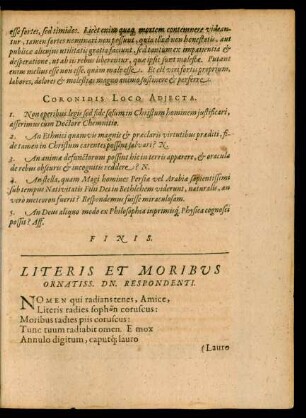 esse fortes, sed timidos. Licet enim quoq; mortem contemnere videantur,
tamen fortes nominari non possunt, quia illud non honestatis, aut
publicæ alicujus utilitatis gratia faciunt, sed tantum ex impatientia &
desperatione, ut ab iis rebus liberentur, quæ ipsis sunt molestæ. Putant
enim melius esse non esse, quàm male esse. At est viri fortis proprium,
labores, dolores & molestias magno animo sustinere & perferre.
CORONIDIS LOCO ADJECTA.
1. Non operibus legis sed fide solum in Christum hominem justificari,
asserimus cum Doctore Chemnitio.
2. An Ethnici quamvis magnis & præclaris virtutibus præditi, fide
tamen in Christum carentes possint salvari? N.
3. An animæ defunctorum possint hic in terris apparere, & oracula
de rebus obscuris & incognitis reddere? N.
4. An stella, quam Magi homines Persiæ vel Arabiæ sapientissimi
sub tempus Nativitatis Filii Dei in Bethlehem viderunt, naturalis, an
verò meteoron fuerit? Respondemus fuisse miraculosam.
5. An Deum aliquo modo ex Philosophia inprimisq; Physica cognosci
possit? Aff.
FINIS.
LITERIS ET MORIBVS
ORNATISS. DN. RESPONDENTI.
NOMEN qui radians tenes, Amice,
Literis radies sophôn coruscus:
Moribus radies piis coruscus:
Tunc tuum radiabit omen. E mox
Annulo digitum, caputq; lauro
(Lauro